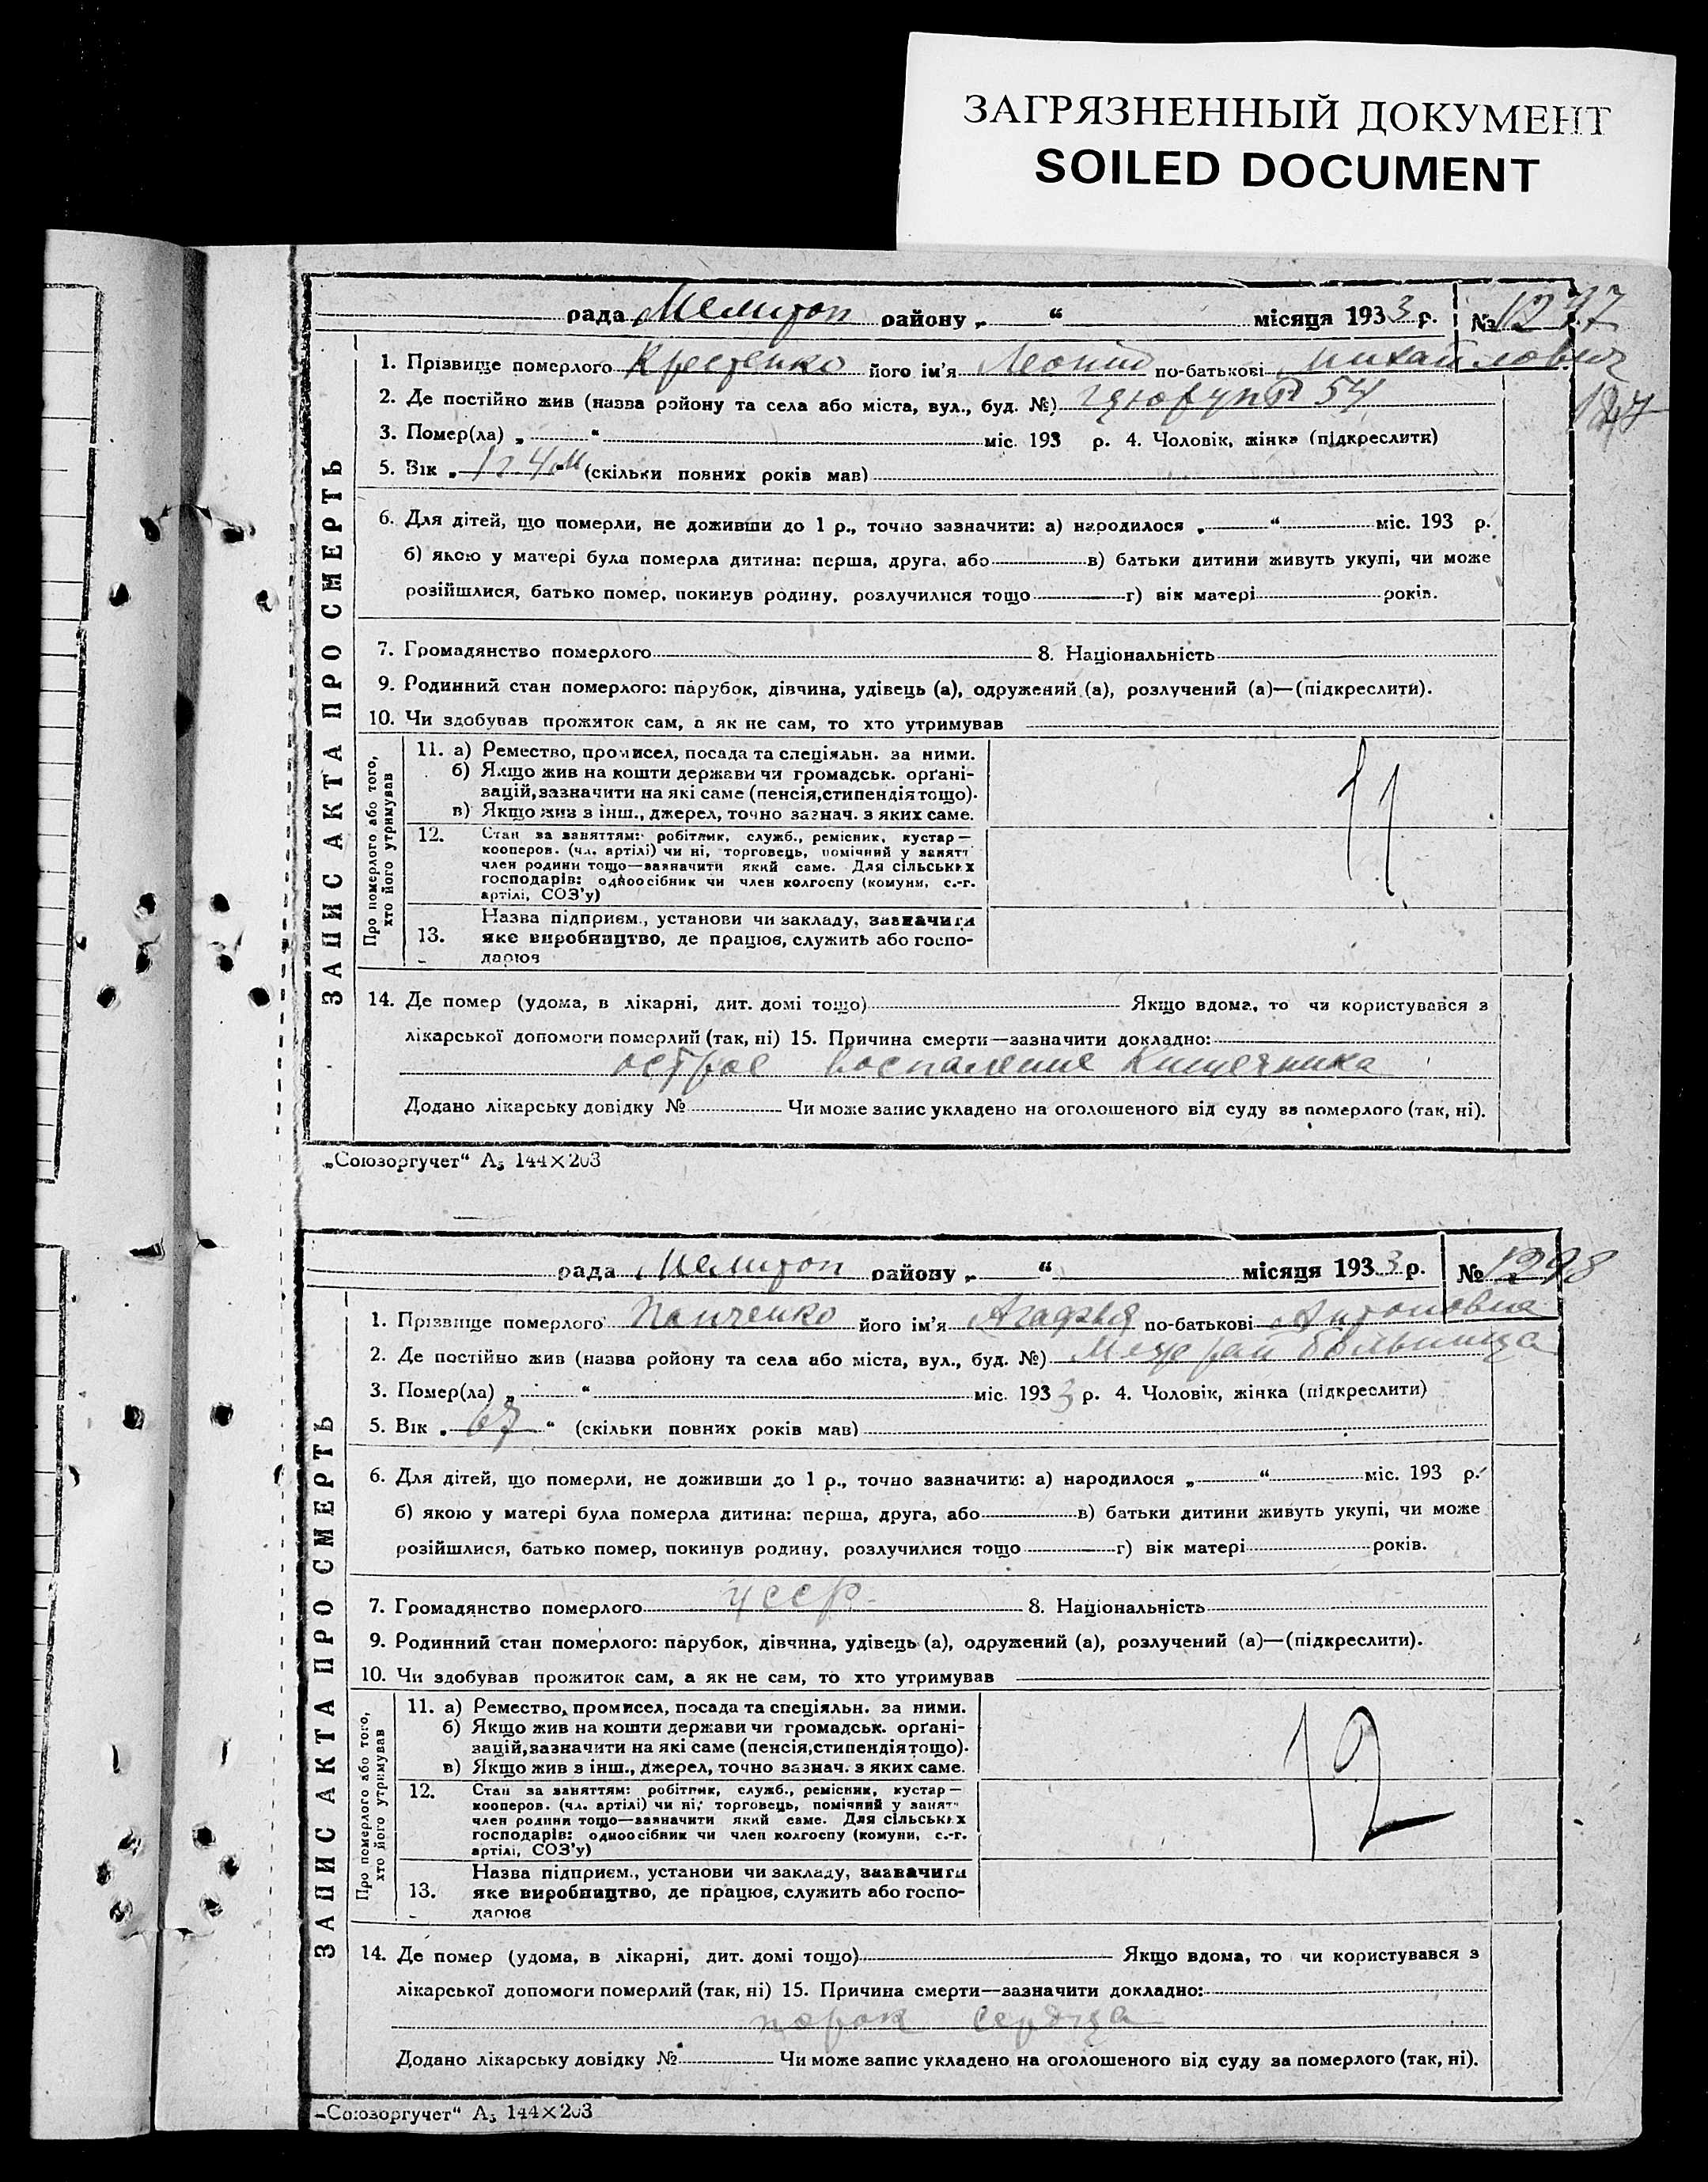 ЗАГРЯЗНЕННЫЙ ДОКУМЕНТ
SOILED DOCUMENT
рада Мелитоп району „ “ місяця 1933 р. № 1277
1. Прізвище померлого його ім'я Леонид по-батькові михайлович
2. Де постійно жив (назва району та села або міста, вул., буд. №) 54
3. Помер(ла) „ “ міс. 193 р. 4. Чоловік, жінка (підкреслити)
5. Вік „ 1г. 4м “ (скільки повних років мав)
6. Для дітей, що померли, не доживши до 1 р., точно зазначити: а) народилося „ “ міс. 193 р.
б) якою у матері була померла дитина: перша, друга, або в) батьки дитини живуть укупі, чи може
розійшлися, батько помер, покинув родину, розлучилися тощо г) вік матері років.
7. Громадянство померлого 8. Національність
9. Родинний стан померлого: парубок, дівчина, удівець (а), одружений (а), розлучений (а)—(підкреслити).
10. Чи здобував прожиток сам, а як не сам, то хто утримував
ЗАПИС АКТА ПРО СМЕРТЬ
Про померлого або того,
хто його утримував
11. а) Ремество, промисел, посада та спеціяльн. за ними.
б) Якщо жив на кошти держави чи громадськ. орґані-
зацій, зазначити на які саме (пенсія, стипендія тощо).
в) Якщо жив з інш., джерел, точно зазнач. з яких саме.
11
12. Стан за заняттям: робітник, служб., ремісник, кустар—
кооперов. (чл. артілі) чи ні, торговець, помічний у занятт
член родини тощо—зазначити який саме. Для сільських
господарів: одноосібник чи член колгоспу (комуни, с.-г.
артілі, СОЗ'у)
Назва підприєм., установи чи закладу, зазначити
13. яке виробництво, де працює, служить або госпо-
дарює
14. Де помер (удома, в лікарні, дит. домі тощо) Якщо вдома, то чи користувався з
лікарської допомоги померлий (так, ні) 15. Причина смерти—зазначити докладно:
острое воспаление Кишечника
Додано лікарську довідку № Чи може запис укладено на оголошеного від суду за померлого (так, ні).
„Союзоргучет“ А₅ 144×203
рада Мелитоп району „ “ місяця 1933 р. №
1. Прізвище померлого Панченко його ім'я Агафья по-батькові Антоновна
2. Де постійно жив (назва району та села або міста, вул., буд. №) больница
3. Помер(ла) „ “ міс. 1933 р. 4. Чоловік, жінка (підкреслити)
5. Вік „ 67 “ (скільки повних років мав)
6. Для дітей, що померли, не доживши до 1 р., точно зазначити: а) народилося „ “ міс. 193 р.
б) якою у матері була померла дитина: перша, друга, або в) батьки дитини живуть укупі, чи може
розійшлися, батько помер, покинув родину, розлучилися тощо г) вік матері років.
7. Громадянство померлого усср. 8. Національність
9. Родинний стан померлого: парубок, дівчина, удівець (а), одружений (а), розлучений (а)—(підкреслити).
10. Чи здобував прожиток сам, а як не сам, то хто утримував
ЗАПИС АКТА ПРО СМЕРТЬ
Про померлого або того,
хто його утримував
11. а) Ремество, промисел, посада та спеціяльн. за ними.
б) Якщо жив на кошти держави чи громадськ. орґані-
зацій, зазначити на які саме (пенсія, стипендія тощо).
в) Якщо жив з інш., джерел, точно зазнач. з яких саме.
12
12. Стан за заняттям: робітник, служб., ремісник, кустар—
кооперов. (чл. артілі) чи ні, торговець, помічний у занятт
член родини тощо—зазначити який саме. Для сільських
господарів: одноосібник чи член колгоспу (комуни, с.-г.
артілі, СОЗ'у)
Назва підприєм., установи чи закладу, зазначити
13. яке виробництво, де працює, служить або госпо-
дарює
14. Де помер (удома, в лікарні, дит. домі тощо) Якщо вдома, то чи користувався з
лікарської допомоги померлий (так, ні) 15. Причина смерти—зазначити докладно:
порок сердца
Додано лікарську довідку № Чи може запис укладено на оголошеного від суду за померлого (так, ні).
„Союзоргучет“ А₅ 144×203